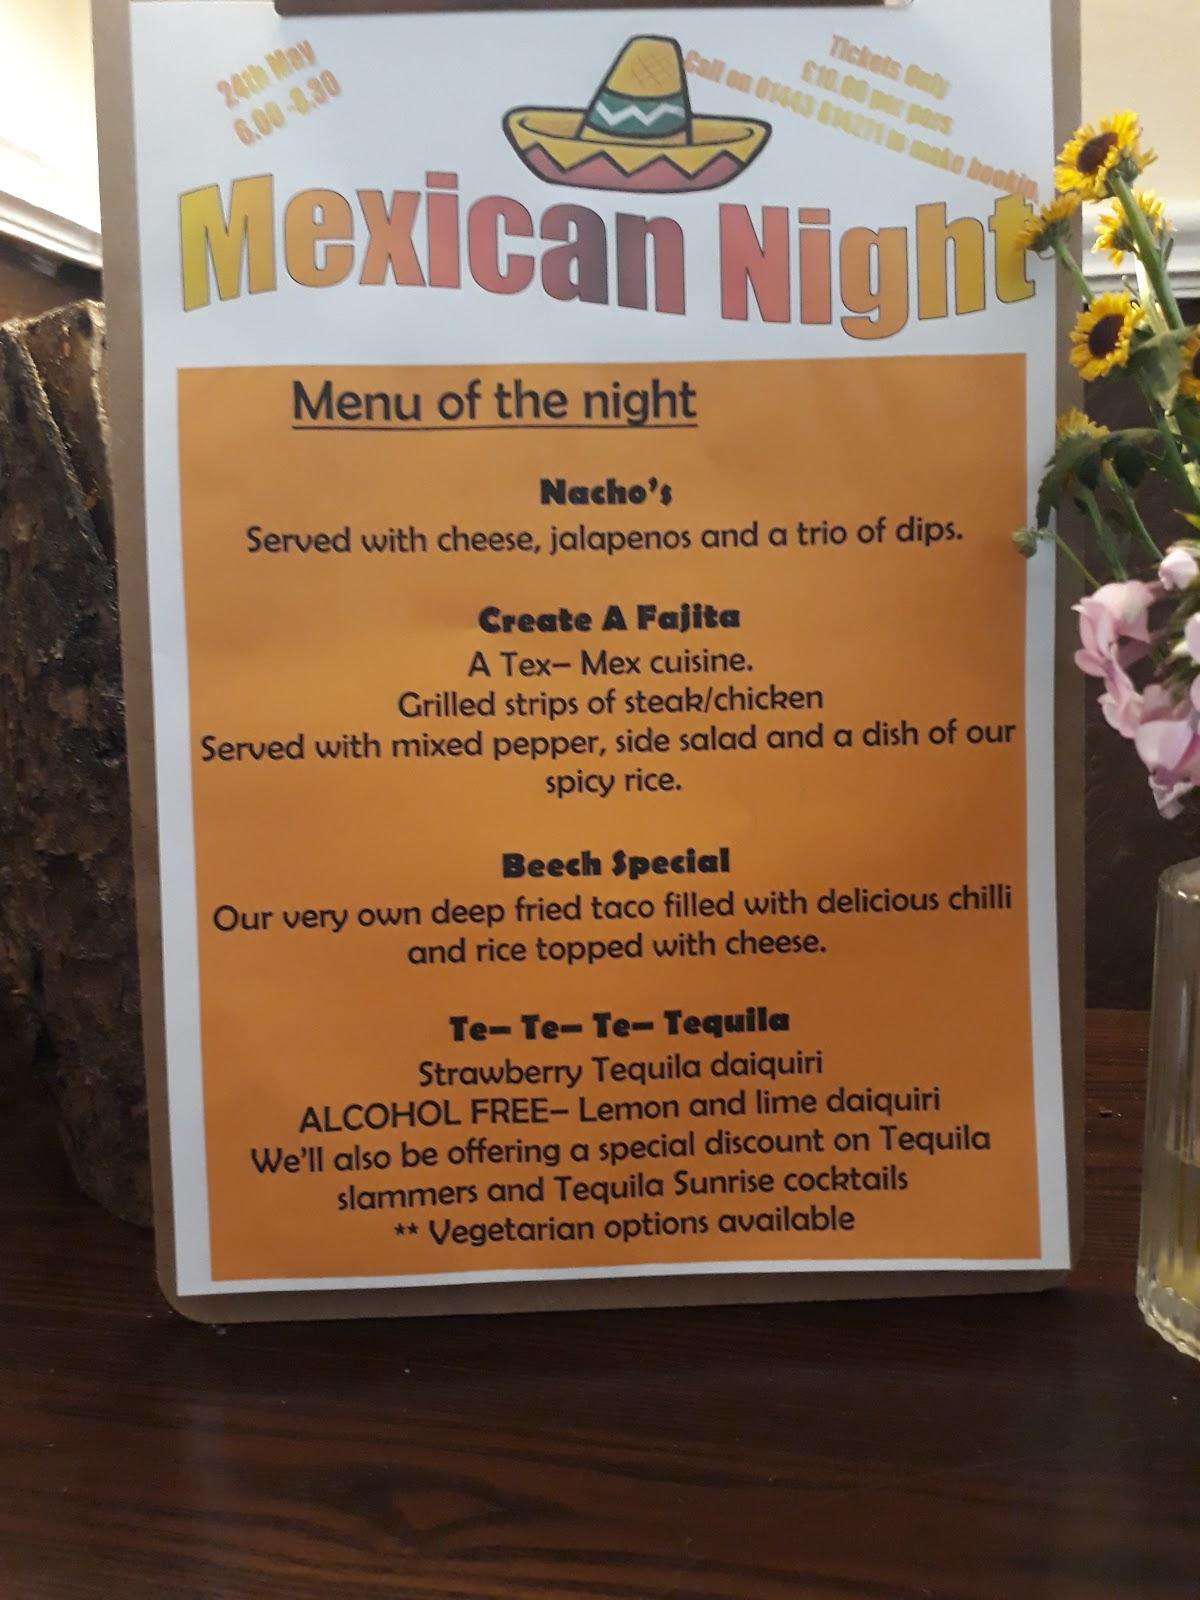 24th May
6.00 -8.30
Tickets Only
£10.00 per pers
Call on 01443 814271 to make bookin
Mexican Night
Menu of the night
Nacho's
Served with cheese, jalapenos and a trio of dips.
Create A Fajita
A Tex– Mex cuisine.
Grilled strips of steak/chicken
Served with mixed pepper, side salad and a dish of our
spicy rice.
Beech Special
Our very own deep fried taco filled with delicious chilli
and rice topped with cheese.
Te– Te– Te– Tequila
Strawberry Tequila daiquiri
ALCOHOL FREE– Lemon and lime daiquiri
We'll also be offering a special discount on Tequila
slammers and Tequila Sunrise cocktails
** Vegetarian options available